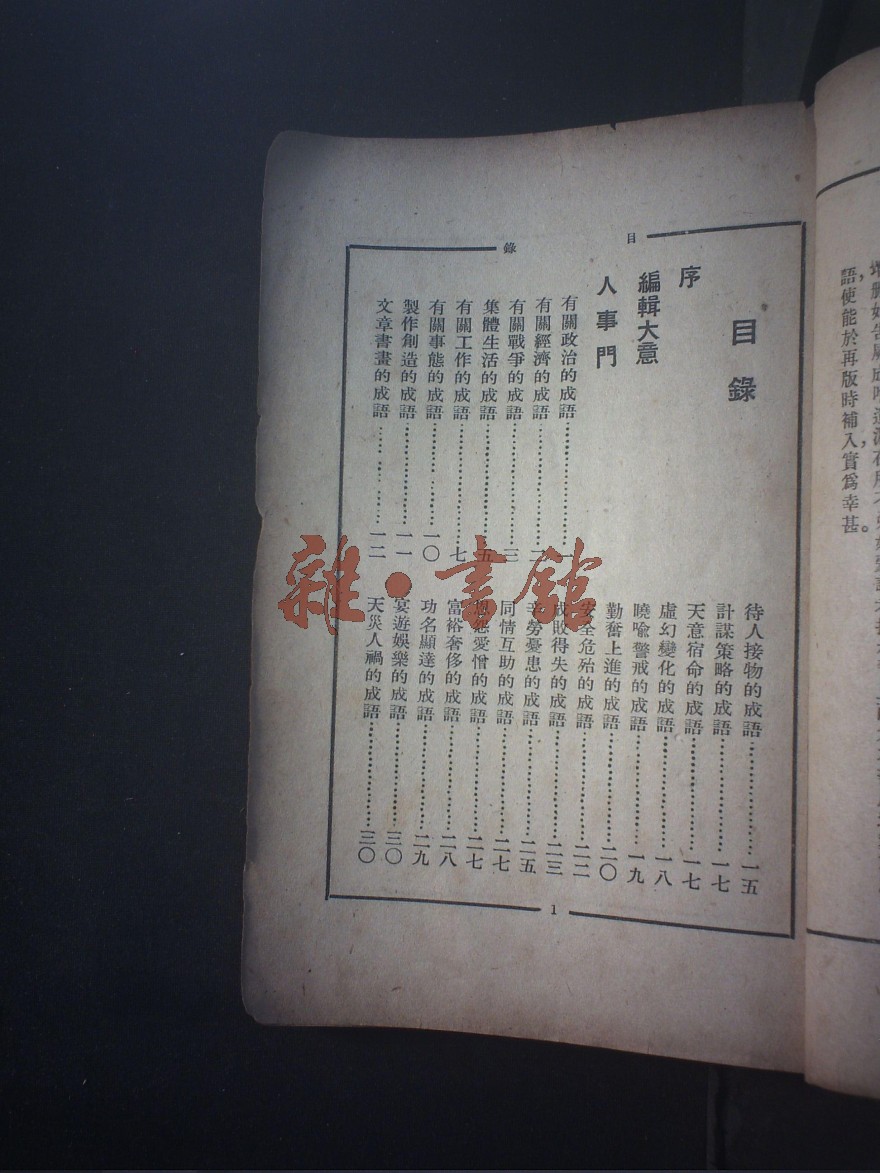 語，使能於再版時補入，實爲幸甚。
目錄
目錄
序
編輯大意
人事門
有關政治的成語……一
有關經濟的成語……二
有關戰爭的成語……三
集體生活的成語……五
有關工作的成語……七
有關事態的成語……一〇
製作創造的成語……一一
文章書畫的成語……一二
待人接物的成語……一五
計謀策略的成語……一七
天意宿命的成語……一七
虛幻變化的成語……一八
曉喻警戒的成語……一九
勤奮上進的成語……二〇
安全危殆的成語……二二
成敗得失的成語……二三
辛勞憂患的成語……二五
同情互助的成語……二七
恩怨愛憎的成語……二七
富裕奢侈的成語……二八
功名顯達的成語……二九
宴遊娛樂的成語……三〇
天災人禍的成語……三〇
1
雜·書館